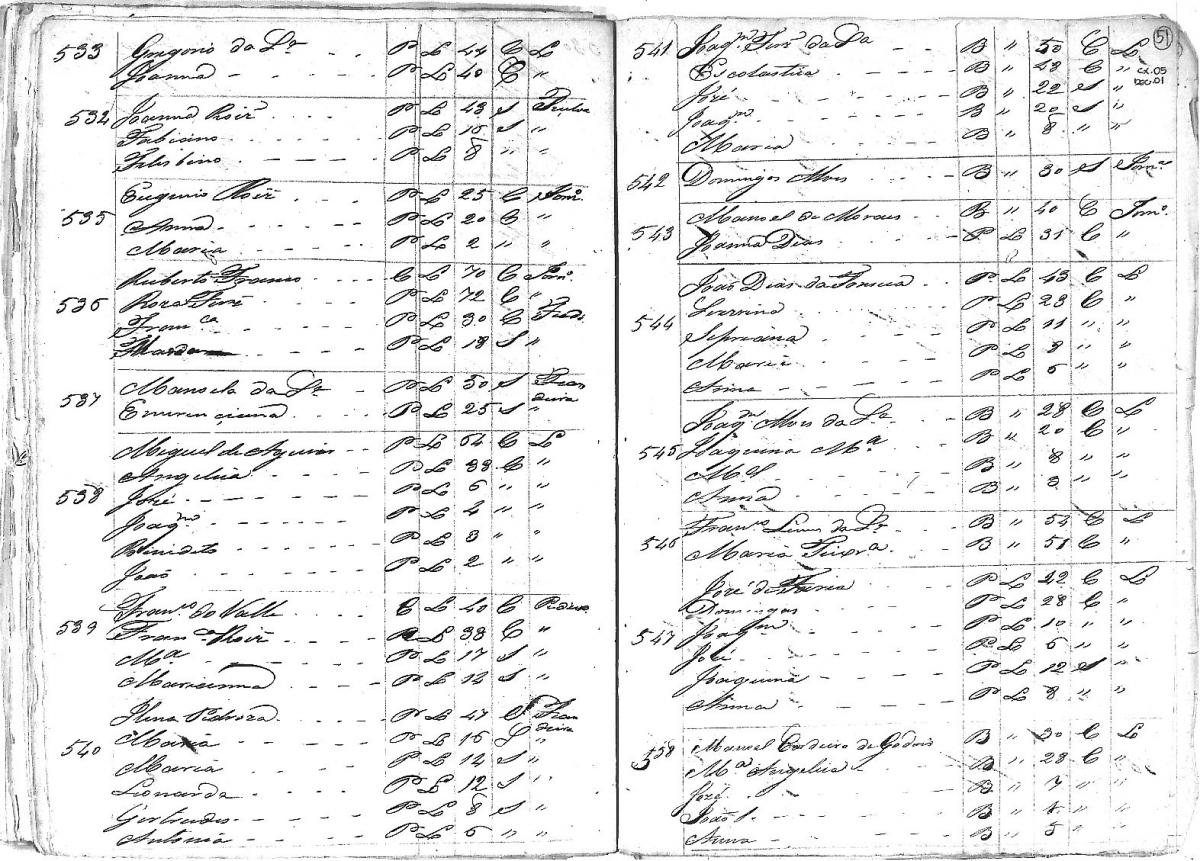 533 Gregorio da Sª P L 44 C L
Joanna P L 40 C "
532 Joanna Roiz P L 43 S
Fabiano P L 15 S "
P L 8 " "
535 Eugenio Roiz P L 25 C Jorn.
Anna P L 20 C "
Maria P L 2 " "
536 Ruberto Franco C L 70 C Jorn.
Roza P L 72 C "
Francª P L 30 C
P L 18 S "
537 Manoela da Sª P L 50 S
P L 25 S "
538 Miguel de P L 54 C L
Angelica P L 38 C "
José P L 6 " "
Joaqm P L 4 " "
Benedito P L 3 " "
João P L 2 " "
539 Franco do Valle C L 40 C
Franca Roiz P L 38 C "
Mª P L 17 S "
Marianna P L 14 S "
540 P L 47 S
Maria P L 16 S "
Maria P L 14 S "
Leonarda P L 12 S "
Gertrudes P L 8 S "
Antonia P L 6 " "
51
cx.05
Doc.01
541 Joaqm da Sª B " 50 C L
Escolastica B " 48 C "
José B " 22 S "
Joaqm B " 20 S "
Maria B " 8 " "
542 Domingos Alves B " 30 S
543 Manoel de Moraes B " 40 C
Joanna Dias P L 31 C "
544 João Dias da Fonseca P L 43 C L
P L 23 C "
P L 11 " "
Maria P L 8 " "
Anna P L 5 " "
545 Joaqm Alves da Sª B " 28 C L
Joaquina Mª B " 20 C "
Mel B " 8 "
Anna B " 3
546 Franco da Sª B " 54 C L
Maria B " 51 C "
547 José de Faria P L 42 C L
Domingas P L 28 C "
Joaqm P L 10 " "
José P L 6 " "
Joaquina P L 12 S "
Anna P L 8 " "
558 Manoel Cordeiro de Godois B " 30 C L
Mª Angelica B " 28 C "
José B " 7 " "
João B " "
Anna B " 5 "